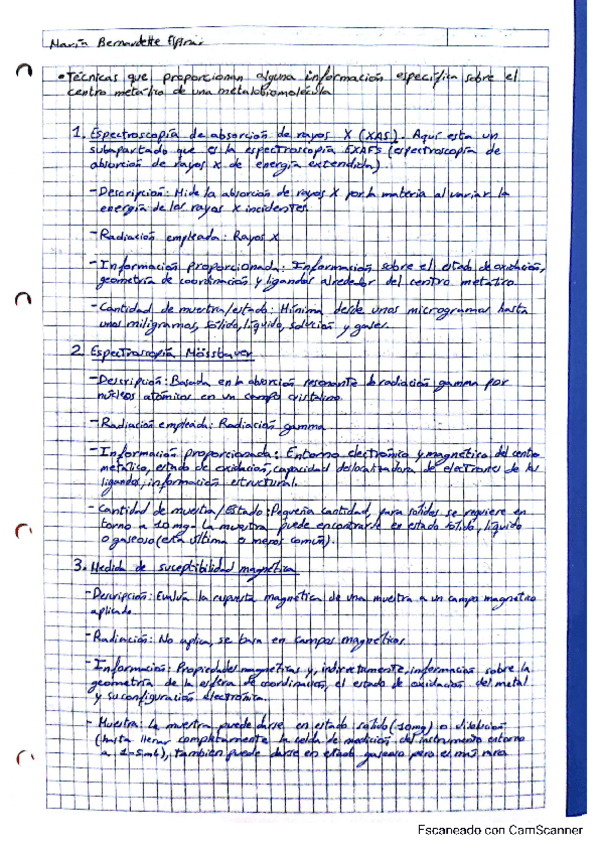 María Bernardette
• Técnicas que proporcionan alguna información específica sobre el
centro metálico de una metalobiomolécula
1. Espectroscopía de absorción de rayos X (XAS). Aquí esta un
subapartado que es la espectroscopía EXAFS (espectroscopía de
absorción de rayos x de energía extendida).
- Descripción: Mide la absorción de rayos X por la materia al variar la
energía de los rayos X incidentes.
- Radiación empleada: Rayos X
- Información proporcionada: Información sobre el estado de oxidación,
geometría de coordinación y ligandos alrededor del centro metálico.
- Cantidad de muestra/estado: Mínima desde unos microgramos hasta
unos miligramos, sólido, líquido, solución y gases.
2. Espectroscopía Mössbauer
- Descripción: Basada en la absorción resonante de radiación gamma por
núcleos atómicos en un campo cristalino.
- Radiación empleada: Radiación gamma
- Información proporcionada: Entorno electrónico y magnético del centro
metálico, estado de oxidación, capacidad deslocalizadora de electrones de los
ligandos, información estructural.
- Cantidad de muestra/Estado: Pequeña cantidad, para sólidos se requiere en
torno a 10 mg. La muestra puede encontrarse en estado sólido, líquido
o gaseoso (esta última o menos común).
3. Medida de susceptibilidad magnética
- Descripción: Evalúa la respuesta magnética de una muestra a un campo magnético
aplicado.
- Radiación: No aplica, se basa en campos magnéticos.
- Información: Propiedades magnéticas y, indirectamente, información sobre la
geometría de la esfera de coordinación, el estado de oxidación del metal
y su configuración electrónica.
- Muestra: La muestra puede darse en estado sólido (10mg) o disolución
(hasta llenar completamente la celda de medición del instrumento entorno
a 1-5mL), también puede darse en estado gaseoso pero es muy raro
Escaneado con CamScanner